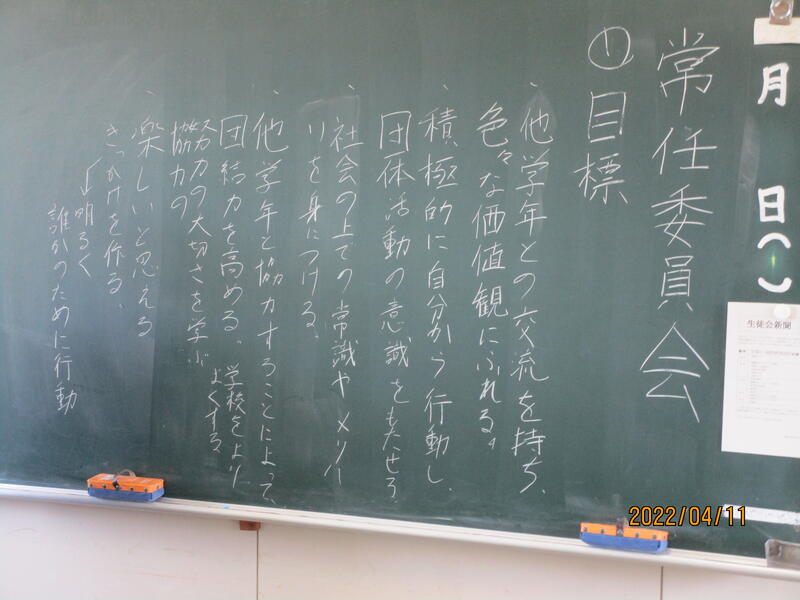 月　日（　）
生徒会新聞
常任委員会
①目標
・他学年との交流を持ち、
色々な価値観にふれる。
・積極的に自分から行動し、
団体活動の意識をもたせる
・社会の上での常識やメリハ
リを身につける。
・他学年と協力することによって、
団結力を高める。学校をより
よくする
協力の大切さを学ぶ
協力の
・楽しいと思える
きっかけを作る、
↳明るく
誰かのために行動
2022/04/11